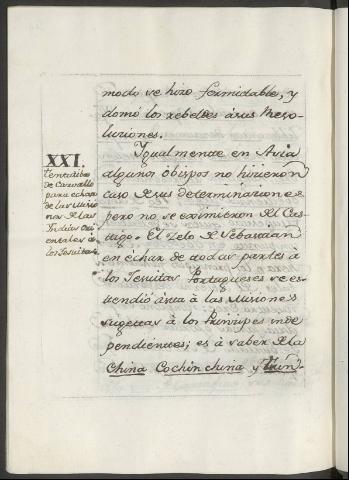 modo se hizo formidable, y
domó los rebeldes à sus Reso-
luziones.
XXI.
tentatiba
de Carvallo
para echar
de las Misio
nes de las
Indias Ori
entales à
los Jesuitas
Igualmente en Asia
algunos obispos no hizieron
caso de sus determinaziones
pero no se eximieron del Cas-
tigo. El Zelo de Sebastian
en echar de todas partes à
los Jesuitas Portugueses se es-
tendió àsta à las Misiones
sugetas à los Prinzipes inde
pendientes; es à saber de la
China Cochinchina y Tun-